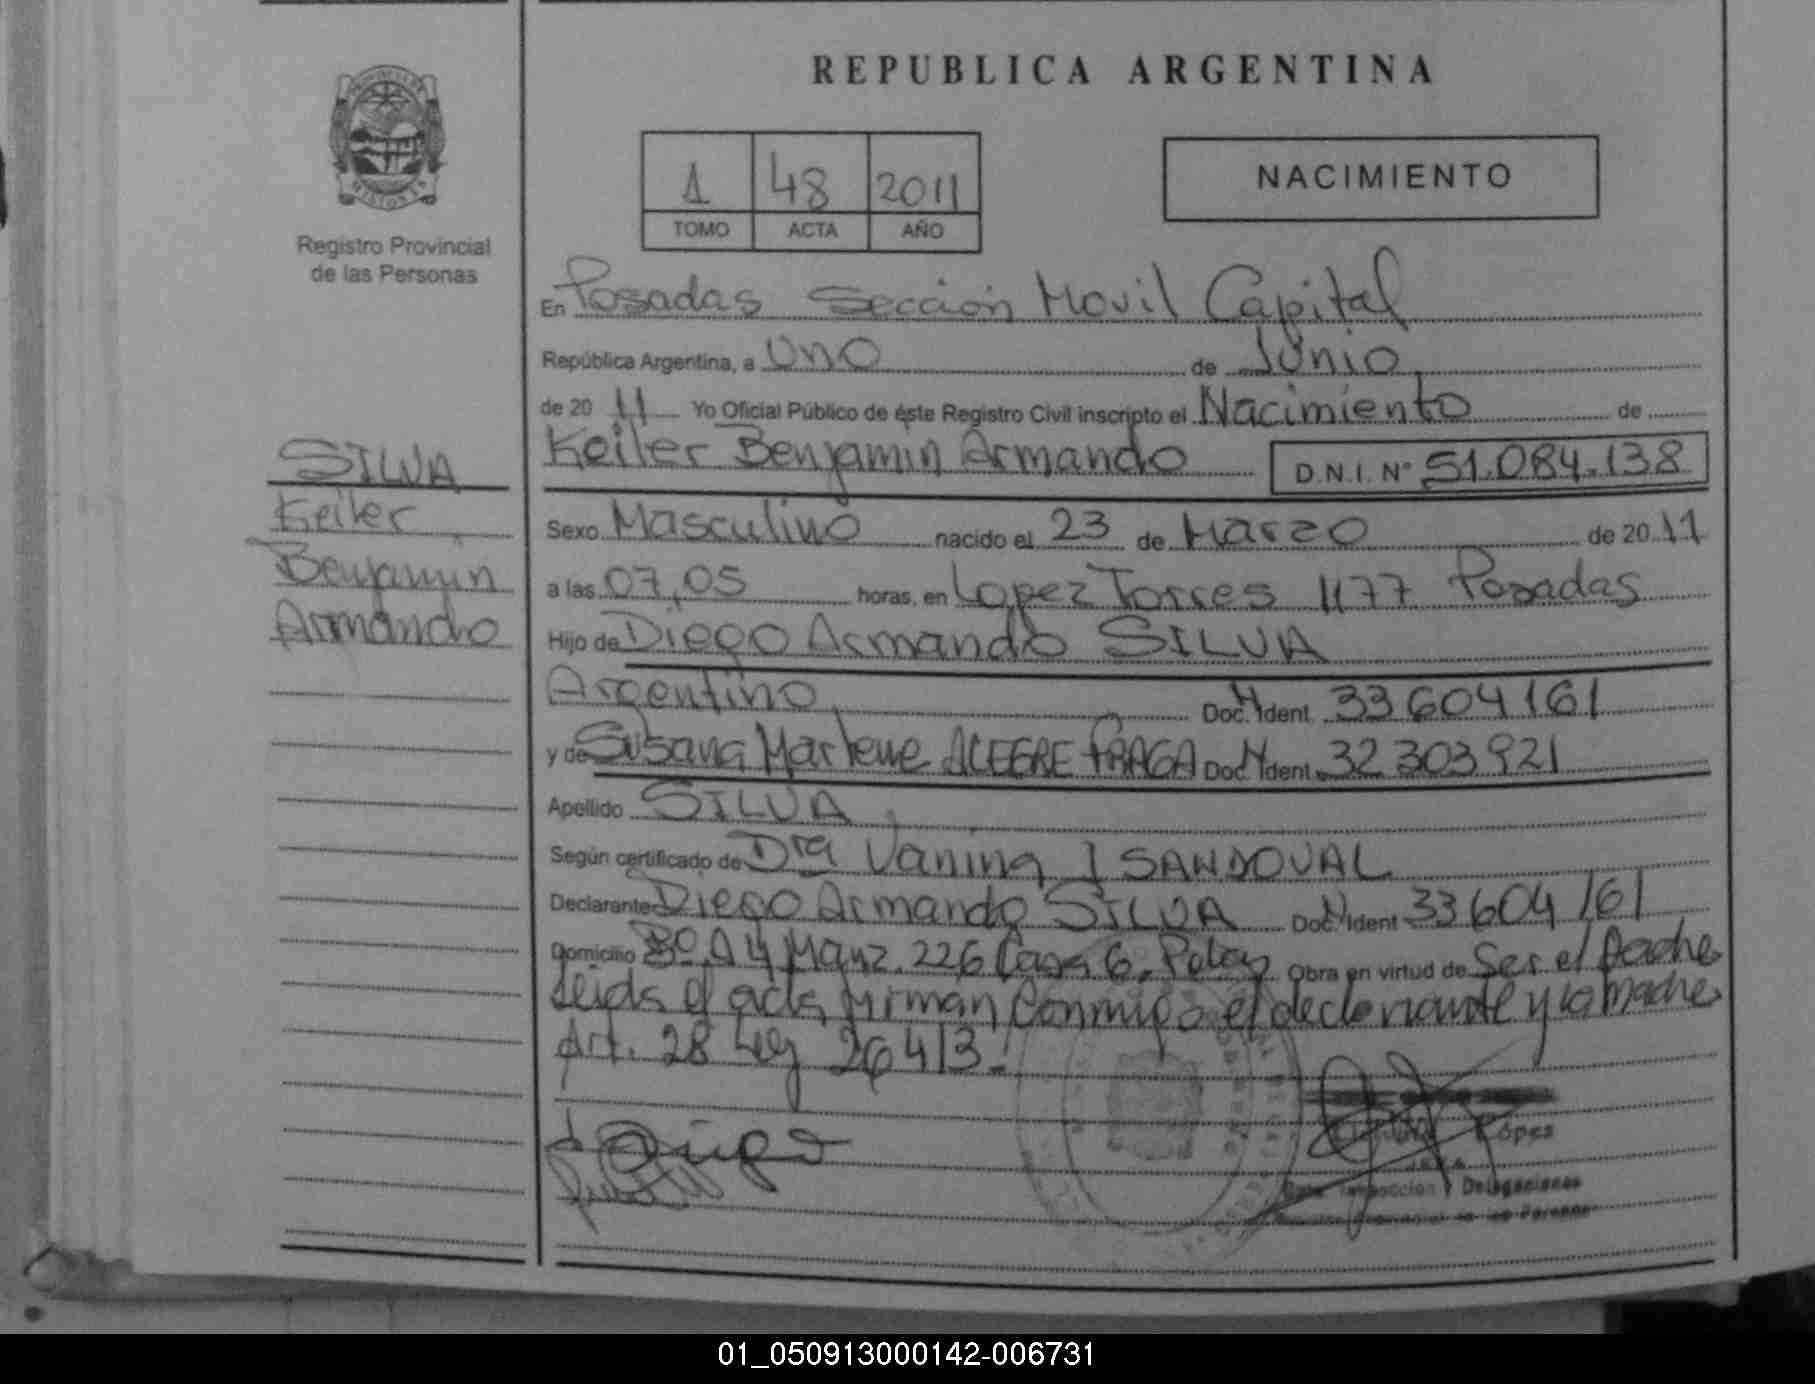 REPUBLICA ARGENTINA
PROVINCIA DE MISIONES
Registro Provincial
de las Personas
1 48 2011
TOMO ACTA AÑO
NACIMIENTO
En Posadas Sección Movil Capital
República Argentina, a uno de Junio
de 20 11 Yo Oficial Público de éste Registro Civil inscripto el Nacimiento de
Keiler Benjamin Armando D.N.I. N° 51.084.138
SILVA
Keiler
Benjamin
Armando
Sexo Masculino nacido el 23 de Marzo de 20 11
a las 07,05 horas, en Lopez Torres 1177 Posadas
Hijo de Diego Armando SILVA
Argentino Doc. N Ident. 33604161
y de Susana Marlene ALEGRE FRAGA Doc. N Ident. 32303921
Apellido SILVA
Según certificado de Dra Vanina J SANDOVAL
Declarante Diego Armando SILVA Doc. N Ident 33604161
Domicilio Bº A4 Manz. 226 Casa 6. Pdas Obra en virtud de Ser el padre
Leida el acta firman conmigo el declarante y la madre
Art. 28 Ley 26413.-
Diego
López
JEFA
Inspección y Delegaciones
01_050913000142-006731